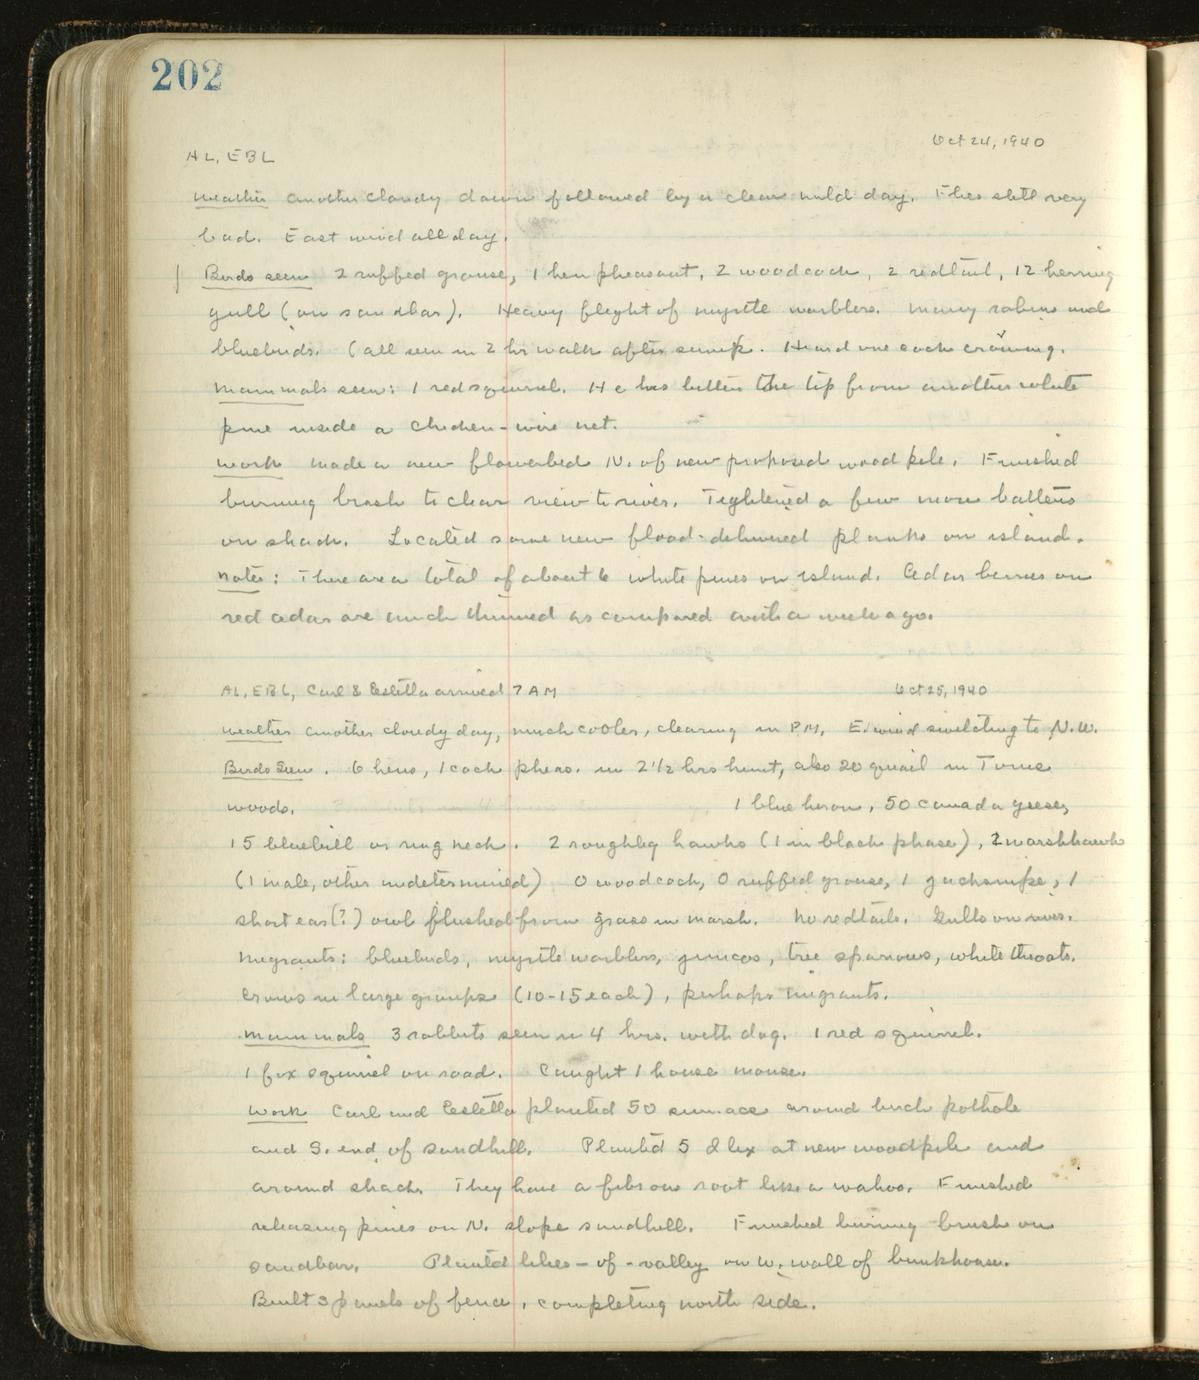 202
Oct 24, 1940
AL, EBL
Weather another cloudy dawn followed by a clear mild day. Flies still very
bad. East wind all day.
Birds seen 2 ruffed grouse, 1 hen pheasant, 2 woodcock, 2 redtail, 12 herring
gull (on sandbar). Heavy flight of myrtle warblers. Many robins and
bluebirds. (all seen in 2 hr walk after sunup. Heard one cock crowing.
Mammals seen: 1 red squirrel. He has bitten the tip from another white
pine inside a chicken-wire net.
Work Made a new flowerbed N. of new proposed wood pile. Finished
burning brush to clear view to river. Tightened a few more battens
on shack. Located some new flood-delivered planks on island.
Notes: There are a total of about 6 white pines on island. Cedar berries on
red cedar are much thinned as compared with a week ago.
AL, EBL, Carl & Estella arrived 7 AM Oct 25, 1940
Weather another cloudy day, much cooler, clearing in PM. E. wind switching to N.W.
Birds Seen. 6 hens, 1 cock pheas. in 2 1/2 hrs hunt, also 20 quail in
woods. 1 blue heron, 50 Canada geese,
15 bluebill or ring neck. 2 roughleg hawks (1 in black phase), 2 marsh hawks
(1 male, other undetermined) 0 woodcock, 0 ruffed grouse, 1 jacksnipe, 1
short ear(?) owl flushed from grass in marsh. No redtails. Gulls on river.
Migrants: bluebirds, myrtle warblers, juncos, tree sparrows, white throats.
Crows in large groups (10-15 each), perhaps migrants.
Mammals 3 rabbits seen in 4 hrs. with dog. 1 red squirrel.
1 fox squirrel on road. Caught 1 house mouse.
Work Carl and Estella planted 50 sumac around birch pothole
and S. end of sandhill. Planted 5 Ilex at new woodpile and
around shack. They have a fibrous root like a wahoo. Finished
releasing pines on N. slope sandhill. Finished burning brush on
sandbar. Planted lilies-of-valley on W. wall of bunkhouse.
Built 3 panels of fence, completing north side.